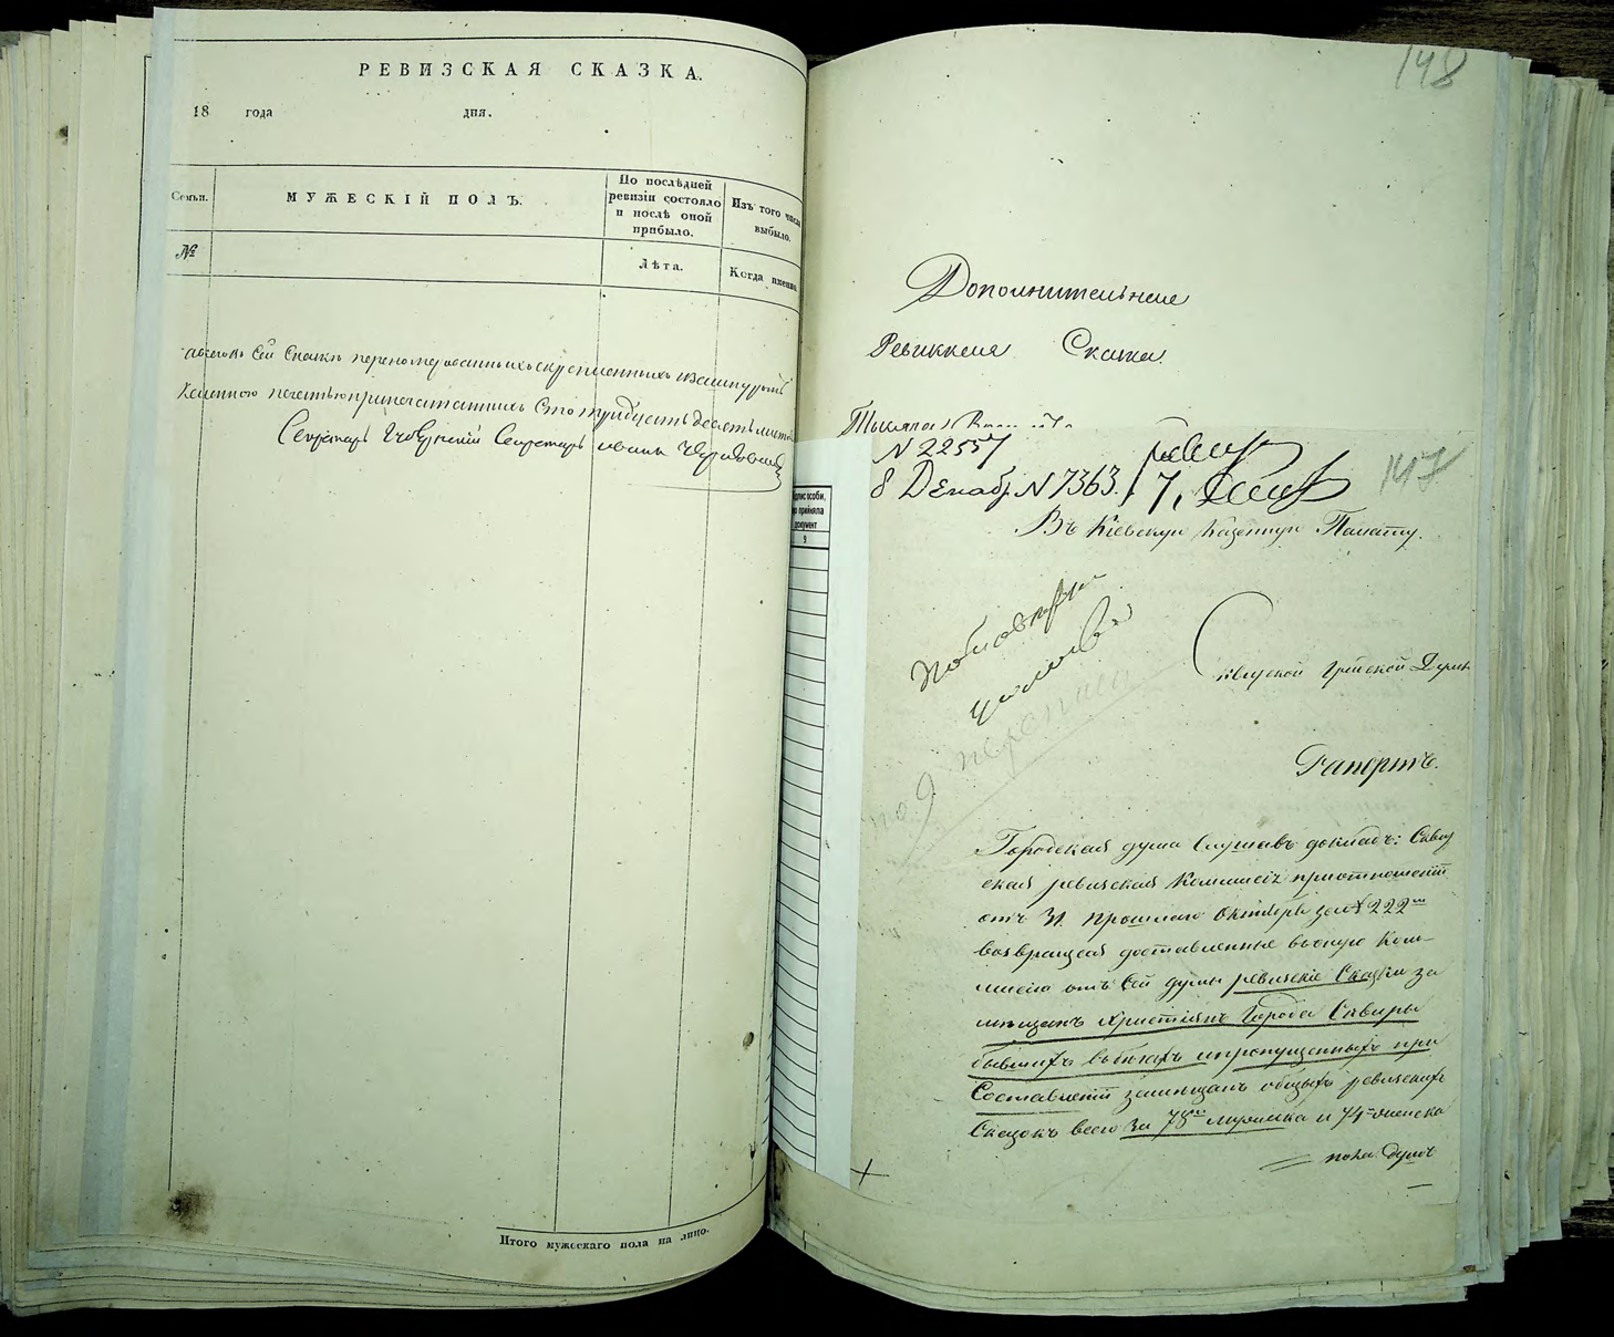 РЕВИЗСКАЯ СКАЗКА.
18 года дня.
Семьи.
МУЖЕСКІЙ ПОЛЪ.
По послѣдней
ревизіи состояло
и послѣ оной
прибыло.
Изъ того числа
выбыло.
№
Лѣта.
Когда именно.
сей Сказкѣ перенумерованныхъ скрепленныхъ
печатью припечатанныхъ Сто тридцать десеть
Секретарь Губернскій Секретарь
Итого мужескаго пола на лицо.
148
Дополнительные
Ревизкие Сказки
N 22557
8 Декабр. N 7363.
147
підпис особи,
що прийняла
документ
9
Въ Кіевскую Казенную Палату.
Сквирской Градской Думы
Рапортъ.
Городская дума Слушавъ докладъ: Сквир
ская ревизская Коммисія при отношеніи
отъ 31 прошлаго Октября за № 222м
возвращая доставленные въ оную Ком-
мисію отъ Сей думы ревизскіе Сказки за
мещанъ Христіанъ Города Сквиры
бывшихъ въ бегахъ и пропущенныхъ при
Составленіи за мещанъ общихъ ревизскихъ
Сказокъ всего за 78м мужеска и 74 женска
пола душъ